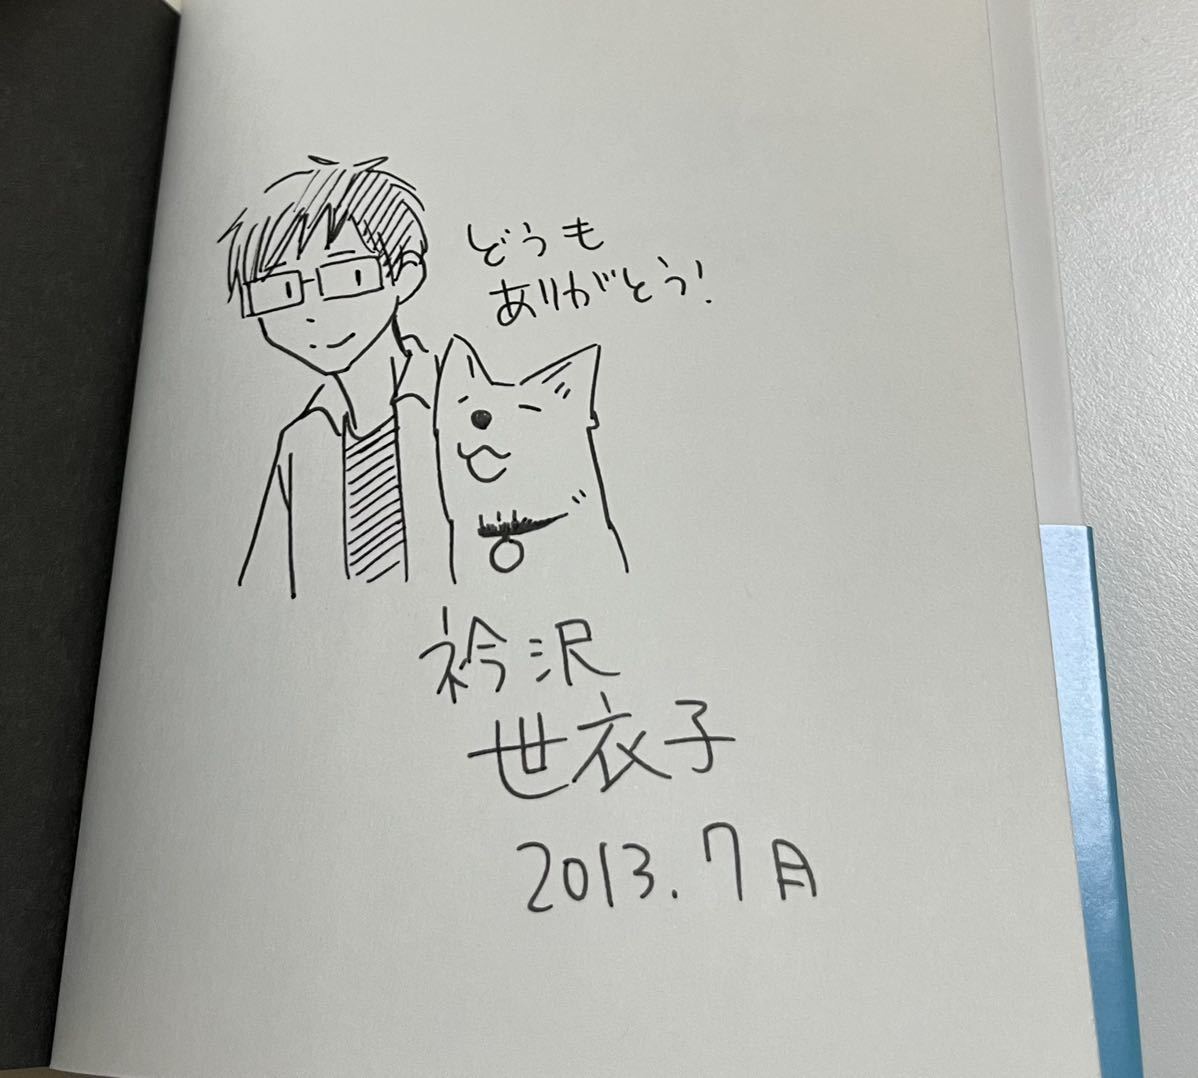 どうも
ありがとう!
衿沢
世衣子
2013.7月